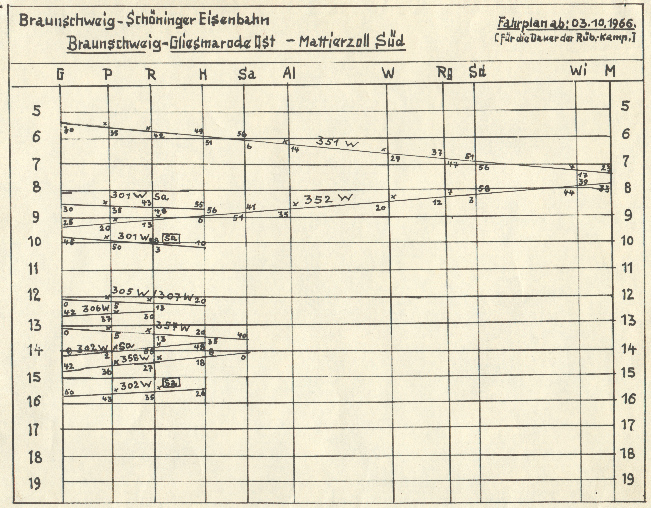 Braunschweig-Schöninger Eisenbahn
Braunschweig-Gliesmarode Ost - Mattierzoll Süd
Fahrplan ab: 03.10.1966.
[für die Dauer der Rüb.-Kamp.]
G P R H Sa Al W Rg Sd Wi M
5 5
6 6
30 35 42 49 51 56 6 14 351 W 29 37 47 51 56 17 23
7 7
8 8
301 W Sa 352 W
30 35 43 55 56 41 51 35 20 12 7 3 58 44 39 33
9 9
25 20 13 6
10 10
45 301 W Sa 10
50 3
11 11
12 12
305 W 307 W 20
0 5 13
42 306 W 37 30
13 13
0 5 357 W 13 20 35 40
14 14
302 W Sa 48
42 36 358 W 27 18 8 0
15 15
302 W Sa
50 43 35 28
16 16
17 17
18 18
19 19